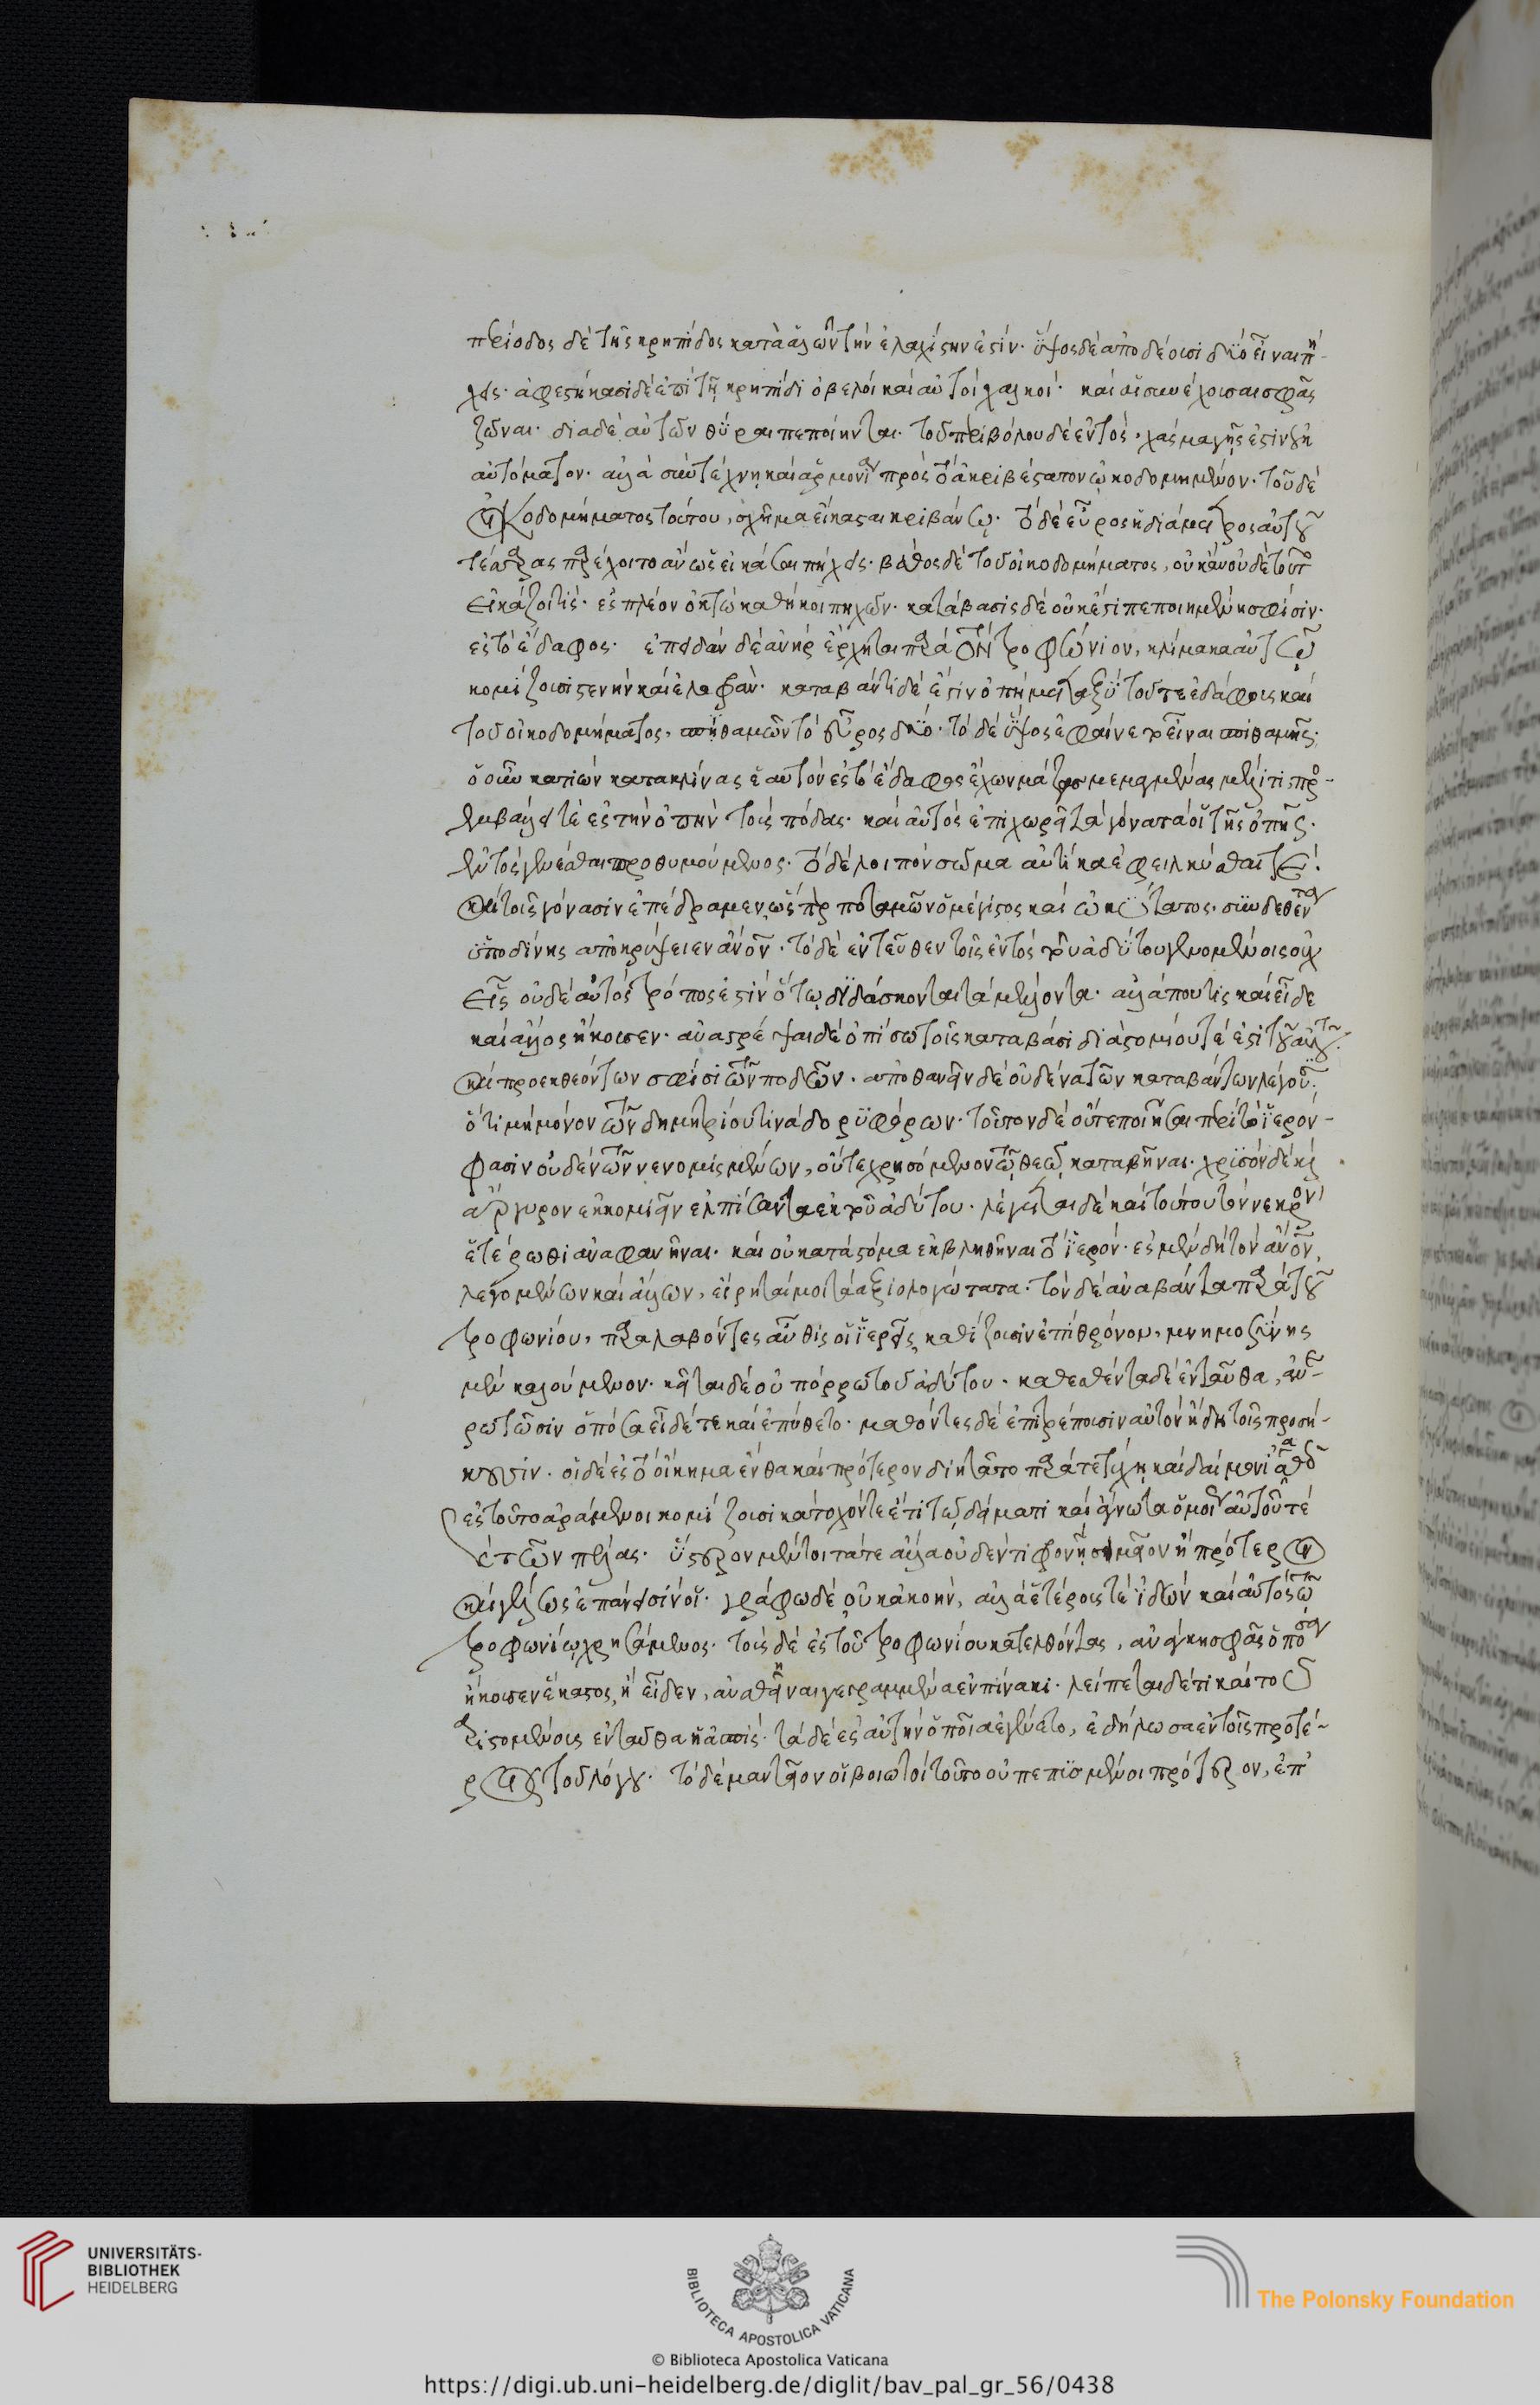 περίοδος δὲ τῆς κρηπῖδος κατὰ ἅλων τὴν ἐλαχίστην ἐστίν· ὕψος δὲ ἀποδέουσι δύο εἶναι πή-
χεις· ἀφεστήκασι δὲ ἐπὶ τῇ κρηπῖδι ὀβελοὶ καὶ αὐτοὶ χαλκοῖ· καὶ αἱ συνέχουσαι σφᾶς
ζῶναι· διὰ δὲ αὐτῶν θύραι πεποίηνται· τοῦ περιβόλου δὲ ἐντός· χάσμα γῆς ἐστὶν οὐκ
αὐτόματον· ἀλλὰ σὺν τέχνῃ καὶ ἁρμονίᾳ πρὸς τὸ ἀκριβέστατον ᾠκοδομημένον· τοῦ δὲ
οἰκοδομήματος τούτου, σχῆμα εἴκασται κριβάνῳ· τὸ δὲ εὖρος ἡ διάμετρος αὐτοῦ
τέσσαρας παρέχοιτο ἂν ὡς εἰκάσαι πήχεις· βάθος δὲ τοῦ οἰκοδομήματος, οὐκ ἂν οὐδὲ τοῦτο
εἰκάζοι τίς· ἐς πλέον ὀκτὼ καθήκοι πηχῶν· κατάβασις δὲ οὐκ ἔστι πεποιημένη σφίσιν·
ἐς τὸ ἔδαφος· ἐπειδὰν δὲ ἀνὴρ ἔρχηται παρὰ τὸν τροφώνιον, κλίμακα αὐτῷ
κομίζουσι στενὴν καὶ ἐλαφράν· καταβάντι δέ ἐστιν ὀπὴ μεταξὺ τοῦ τε ἐδάφους καὶ
τοῦ οἰκοδομήματος, σπιθαμῶν τὸ εὖρος δύο· τὸ δὲ ὕψος ἐφαίνετο εἶναι σπιθαμῆς·
ὁ οὖν κατιὼν κατακλίνας ἑαυτὸν ἐς τὸ ἔδαφος ἔχων μάζας μεμαγμένας μέλιτι, προ-
εμβάλλει τε ἐς τὴν ὀπὴν τοὺς πόδας· καὶ αὐτὸς ἐπιχωρεῖ τὰ γόνατά οἱ τῆς ὀπῆς·
ἐντὸς γενέσθαι προθυμούμενος· τὸ δὲ λοιπὸν σῶμα αὐτίκα ἐφειλκύσθαι τε·
καὶ τοῖς γόνασιν ἐπέδραμεν, ὥσπερ ποταμῶν ὁ μέγιστος καὶ ὠκύτατος· συνδεθέντα
ὑπὸ δίνης ἀποκρύψειεν ἄνον· τὸ δὲ ἐντεῦθεν τοῖς ἐντὸς τοῦ ἀδύτου γενομένοις οὐχ
εἷς οὐδὲ αὐτὸς τρόπος ἐστὶν ὅτῳ διδάσκονται τὰ μέλλοντα· ἀλλά που τὶς καὶ εἶδε
καὶ ἄλλος ἤκουσεν· ἀναστρέψαι δὲ ὀπίσω τοῖς καταβᾶσι διὰ στομίου τέ ἐστι τοῦ αὐτοῦ·
καὶ προεκθεόντων σφίσι τῶν ποδῶν· ἀποθανεῖν δὲ οὐδένα τῶν καταβάντων λέγουσιν·
ὅτι μὴ μόνον τῶν δημητρίου τινὰ δορυφόρων· τοῦτον δὲ οὔτε ποιῆσαι περὶ τὸ ἱερόν-
φασιν οὐδὲν τῶν νενομισμένων, οὔτε χρησόμενον τῷ θεῷ καταβῆναι· χρυσὸν δὲ καὶ
ἄργυρον ἐκκομιεῖν ἐλπίσαντα ἐκ τοῦ ἀδύτου· λέγεται δὲ καὶ τούτου τὸν νεκρὸν
ἑτέρωθι ἀναφανῆναι· καὶ οὐ κατὰ στόμα ἐκβληθῆναι τὸ ἱερόν· ἐς μὲν δὴ τὸν ἄνον,
λεγομένων καὶ ἄλλων, εἴρηταί μοι τὰ ἀξιολογώτατα· τὸν δὲ ἀναβάντα παρὰ τοῦ
τροφωνίου, παραλαβόντες αὖθις οἱ ἱερεῖς καθίζουσιν ἐπὶ θρόνον, μνημοσύνης
μὲν καλούμενον· κεῖται δὲ οὐ πόρρω τοῦ ἀδύτου· καθεσθέντα δὲ ἐνταῦθα, ἀνε-
ρωτῶσιν ὁπόσα εἶδέ τε καὶ ἐπύθετο· μαθόντες δὲ ἐπιτρέπουσιν αὐτὸν ἤδη τοῖς προσή-
κουσιν· οἱ δὲ ἐς τὸ οἴκημα ἔνθα καὶ πρότερον διῃτᾶτο παρά τε τύχῃ καὶ δαίμονι ἀγαθῷ
ἐς τοῦτο ἀράμενοι κομίζουσι κάτοχόν τε ἔτι τῷ δείματι καὶ ἀγνῶτα ὁμοίως αὑτοῦ τέ
καὶ τῶν πέλας· ὕστερον μέντοι τά τε ἄλλα οὐδέν τι φρονήσει μεῖον ἢ πρότερον
καὶ γέλως ἐπάνεισίν οἱ· γράφω δὲ οὐκ ἀκοήν, ἀλλὰ ἑτέρους τε ἰδὼν καὶ αὐτὸς τῷ
τροφωνίῳ χρησάμενος· τοὺς δὲ ἐς τοῦ τροφωνίου κατελθόντας, ἀνάγκη σφᾶς ὁπόσα
ἤκουσεν ἕκαστος, ἢ εἶδεν, ἀναθεῖναι γεγραμμένα ἐν πίνακι· λείπεται δ' ἔτι καὶ τοῦ
ἀριστομένους ἐνταῦθα ἡ ἀσπίς· τὰ δὲ ἐς αὐτὴν ὁποῖα ἐγένετο, ἐδήλωσα ἐν τοῖς προτέ-
ροις τοῦ λόγου· τὸ δὲ μαντεῖον οἱ βοιωτοὶ τοῦτο οὐ πεπυσμένοι πρότερον, ἐπ'
UNIVERSITÄTS-
BIBLIOTHEK
HEIDELBERG
BIBLIOTECA APOSTOLICA VATICANA
The Polonsky Foundation
© Biblioteca Apostolica Vaticana
https://digi.ub.uni-heidelberg.de/diglit/bav_pal_gr_56/0438